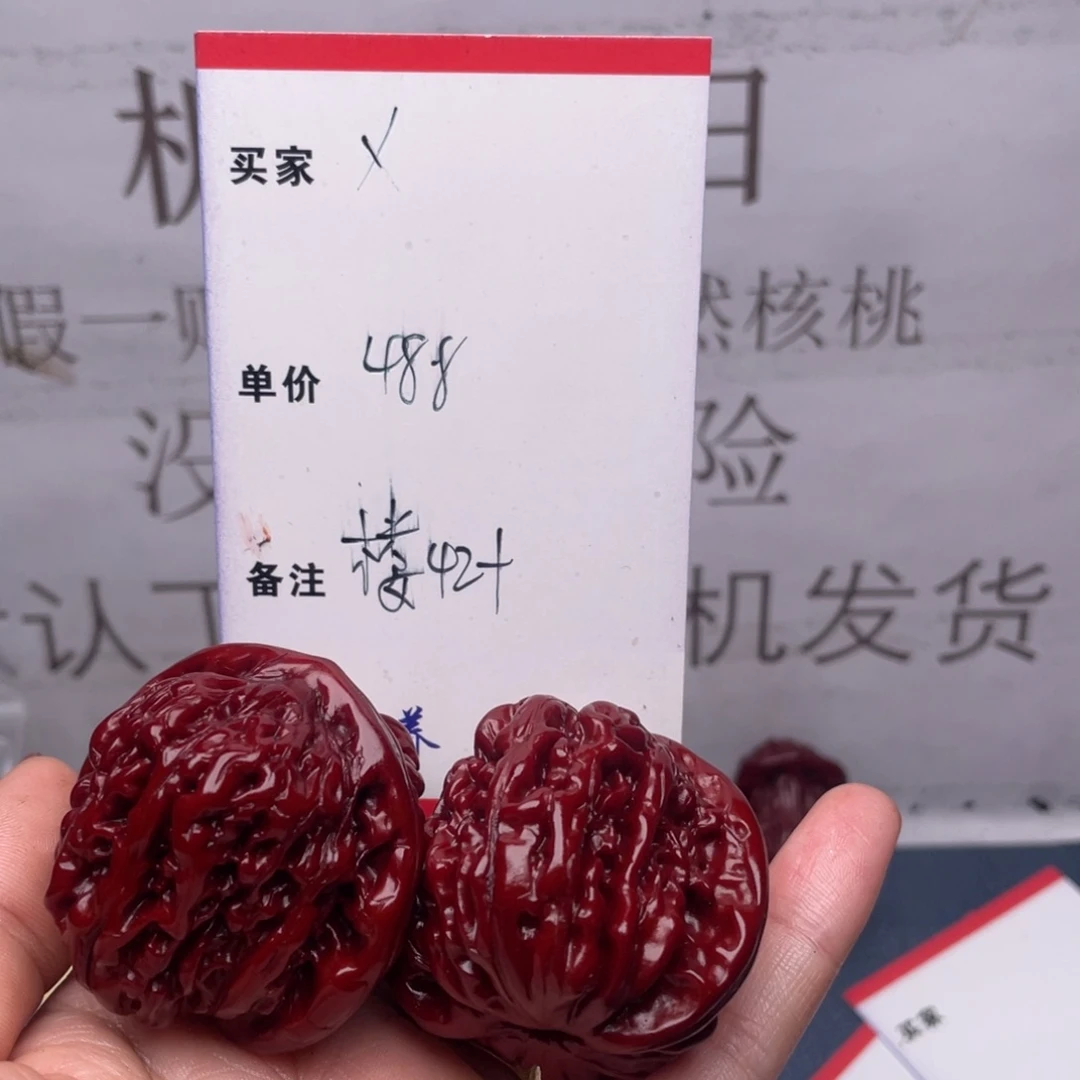 买家
单价 488
备注 楼42+
养
日
假一
然核桃
没 险
认 机发货
买家